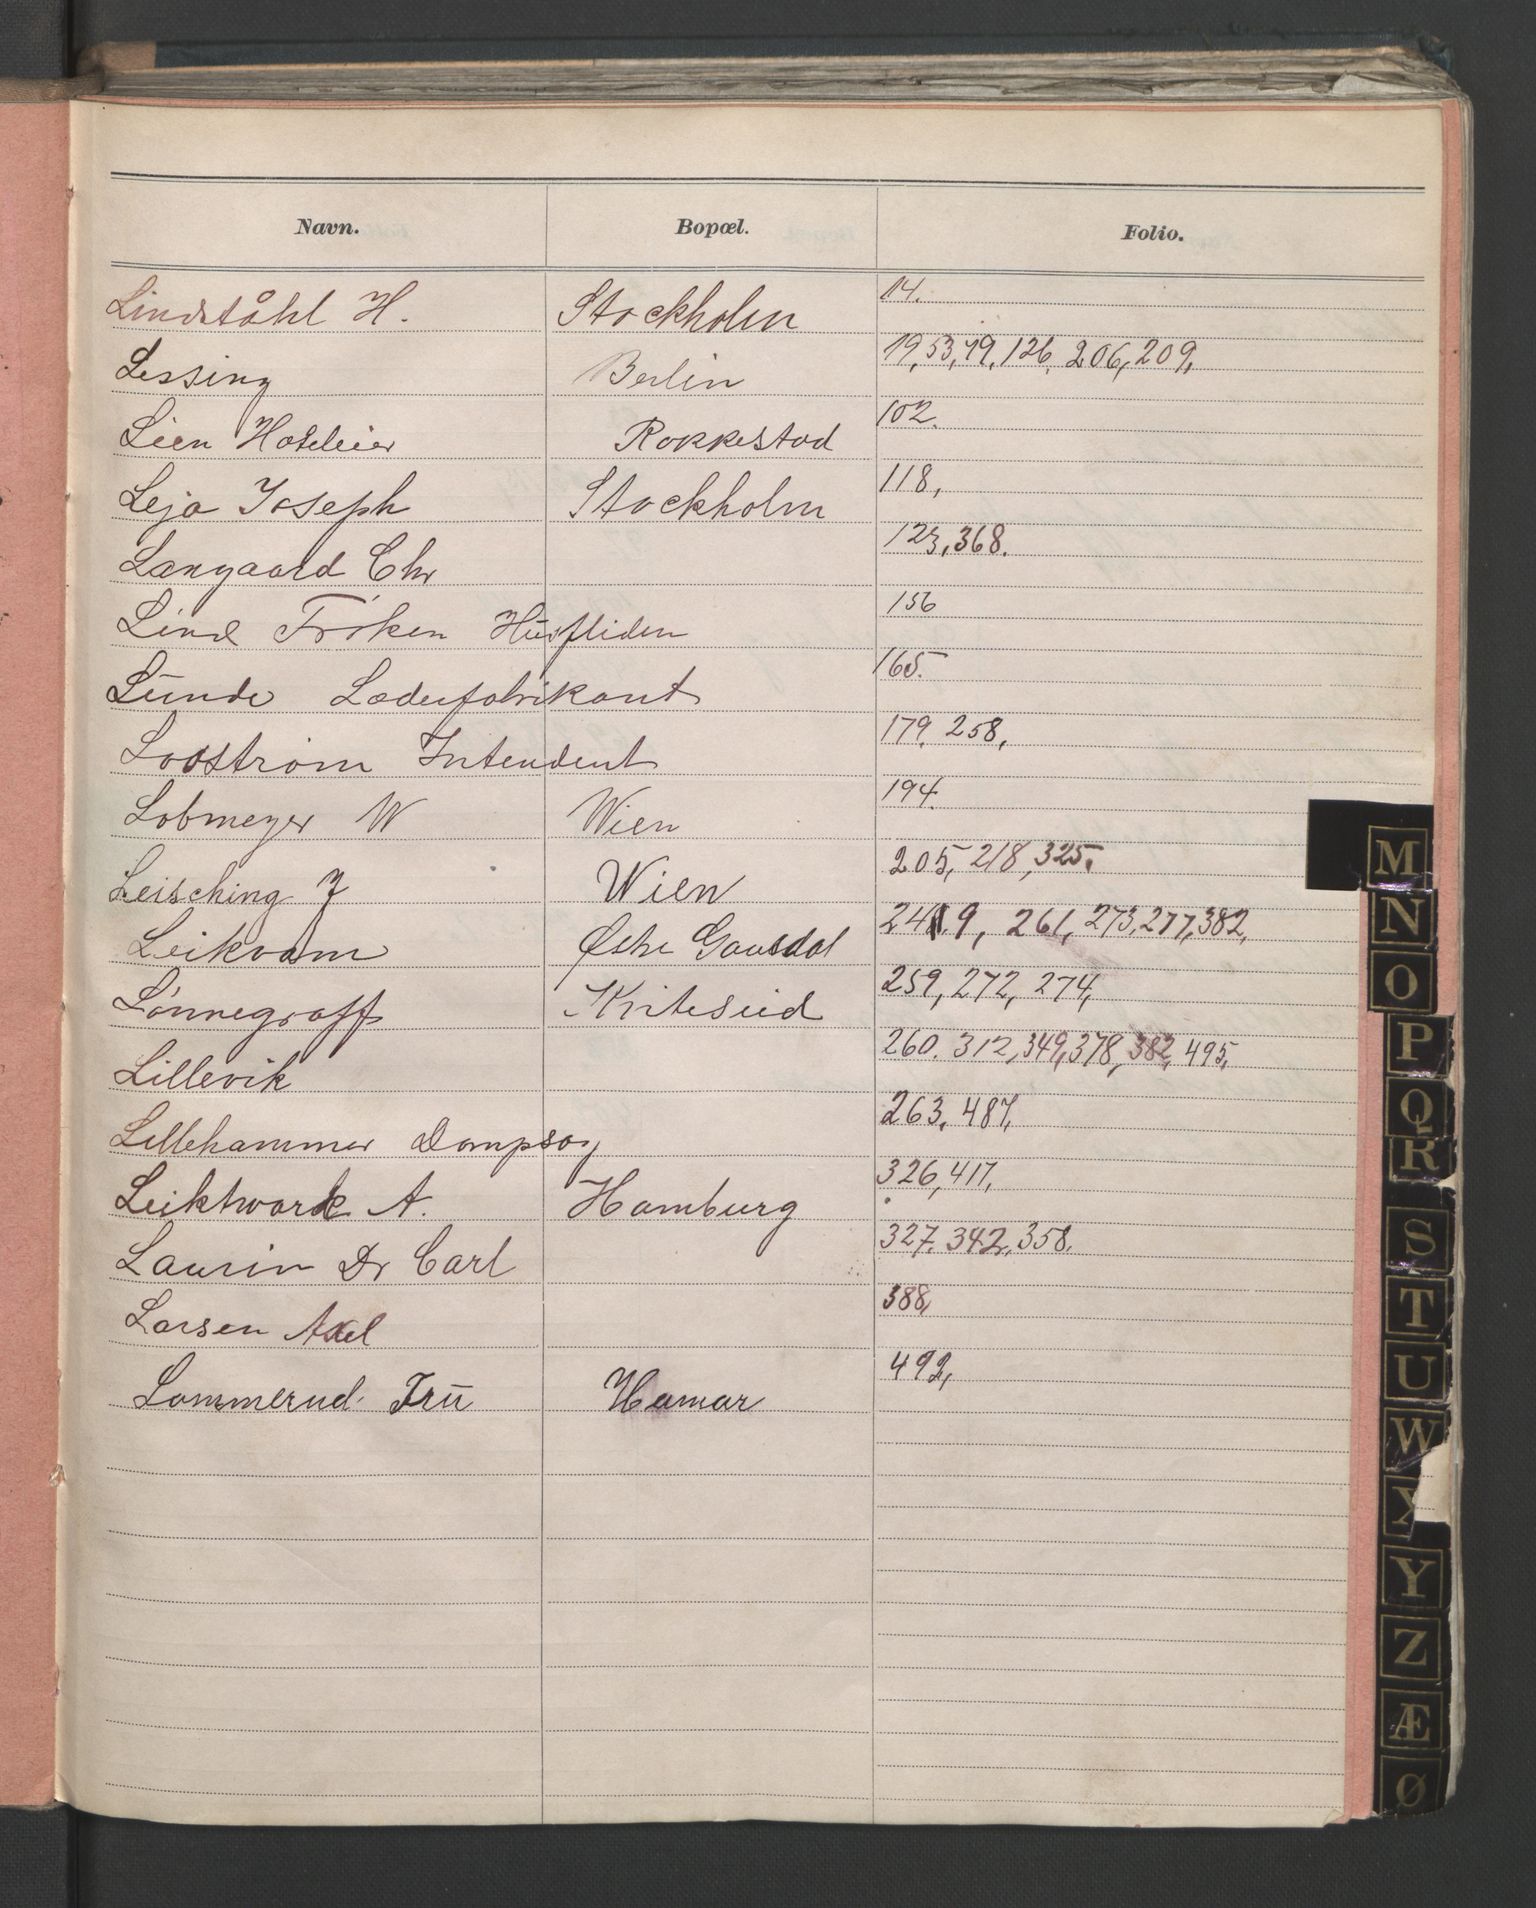 Navn. Bopæl. Folio.
Lindståhl H. Stockholm 14.
Lessing Berlin 19, 53, 79, 126, 206, 209,
Lien Hoteleier Rakkestad 102.
Leja Joseph Stockholm 118,
Langaard Chr 123, 368.
Lind Frøken Husfliden 156
Lunde Læderfabrikant 165.
Looström Intendent 179, 258,
Lobmeyer W Wien 194.
Leisching J Wien 205, 218, 325.
Leikvam Østre Gausdal 249, 261, 273, 277, 382,
Lønnegraff Kviteseid 259, 272, 274,
Lillevik 260. 312, 349, 378, 382, 495,
Lillehammer Dampsag 263, 487,
Leiktwark A. Hamburg 326, 417,
Laurin Dr Carl 327. 342, 358,
Larsen Axel 388,
Lommerud Fru Hamar 492,
M
N
O
P
Q
R
S
T
U
W
X
Y
Z
Æ
Ø